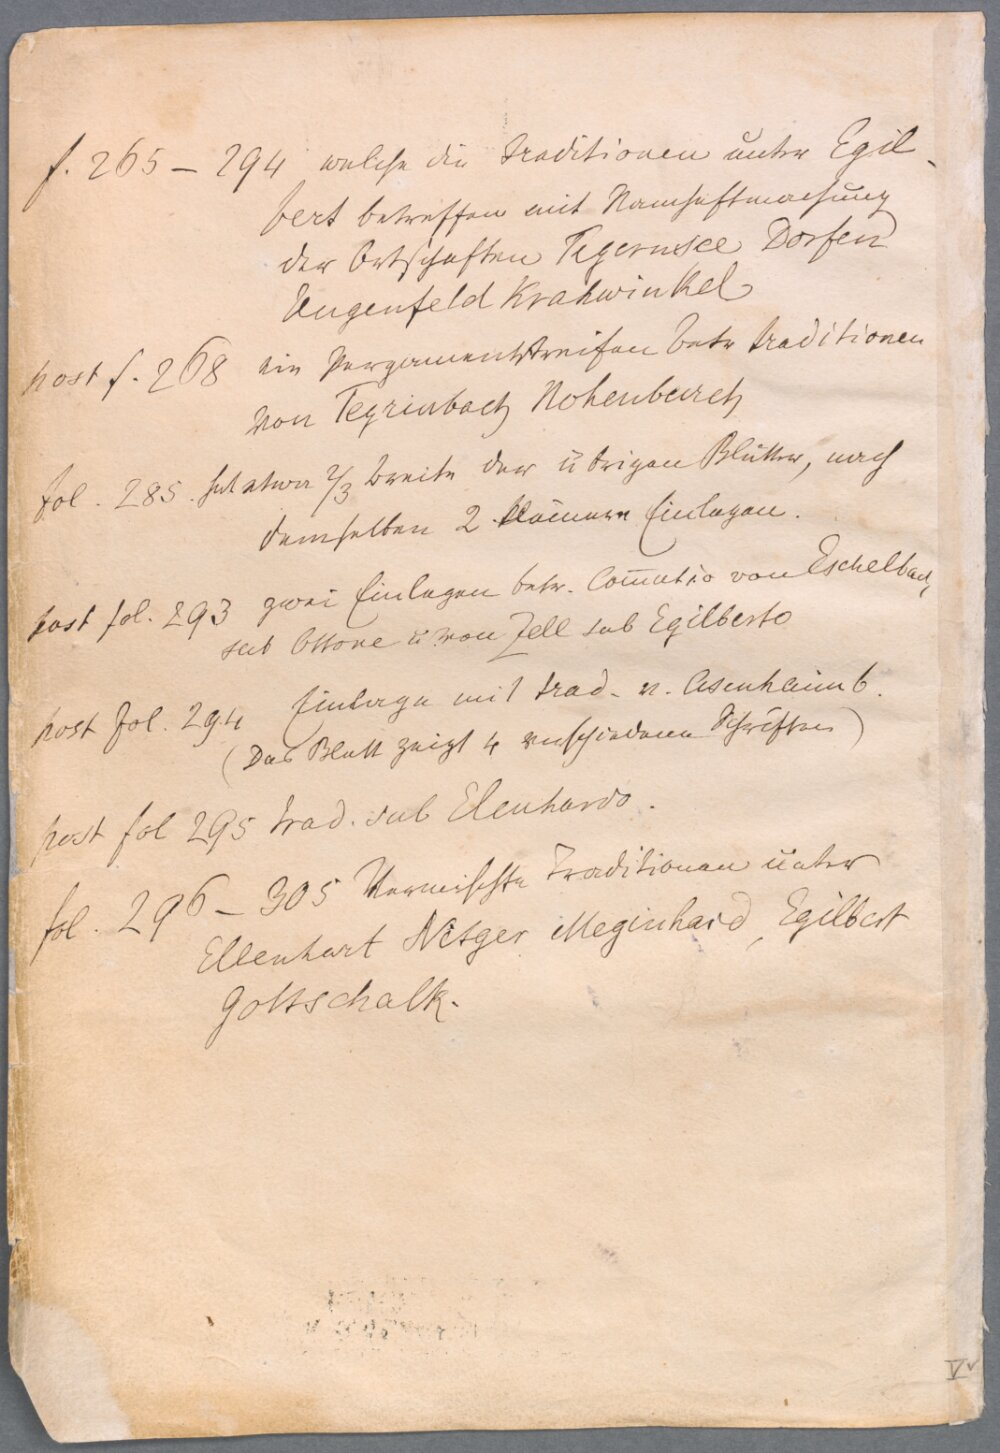 f. 265 – 294 welche die Traditionen unter Egil-
bert betreffen mit Namhaftmachung
der Ortschaften Tegernsee Dorfen
Ungenfeld Krahwinkel
post f. 268 ein Pergamentstreifen betr Traditionen
von Tegrinbach Hohenbach
fol. 285. hat etwa 2/3 Breite der übrigen Blätter, nach
demselben 2 kleinere Einlagen.
post fol. 293 zwei Einlagen betr. Com̄utatio von Eschelbach,
sub Ottone u von Zell sub Egilberto
post fol. 294 Einlage mit trad. v. Asenhaim 6.
(Das Blatt zeigt 4 verschiedene Schriften)
post fol 295 trad. sub Elenhardo.
fol. 296 – 305 Vermischte Traditionen unter
Ellenhart Nitger Meginhard, Egilbert
Gottschalk.
Vv